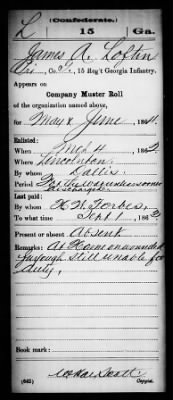 (Confederate.)
L 15 Ga.
James A. Loftin
Co. 15 Reg't Georgia Infantry.
Appears on
Company Muster Roll
of the organization named above,
for May & June, 1864.
Enlisted:
When 4, 186
Where Lincolnton
By whom
Period For the war unless sooner discharged
Last paid:
By whom Forbes
To what time Sept 1, 1863
Present or absent Absent
Remarks: At Home on wounded
furlough still unable for
duty,
Book mark:
(642) Copyist.